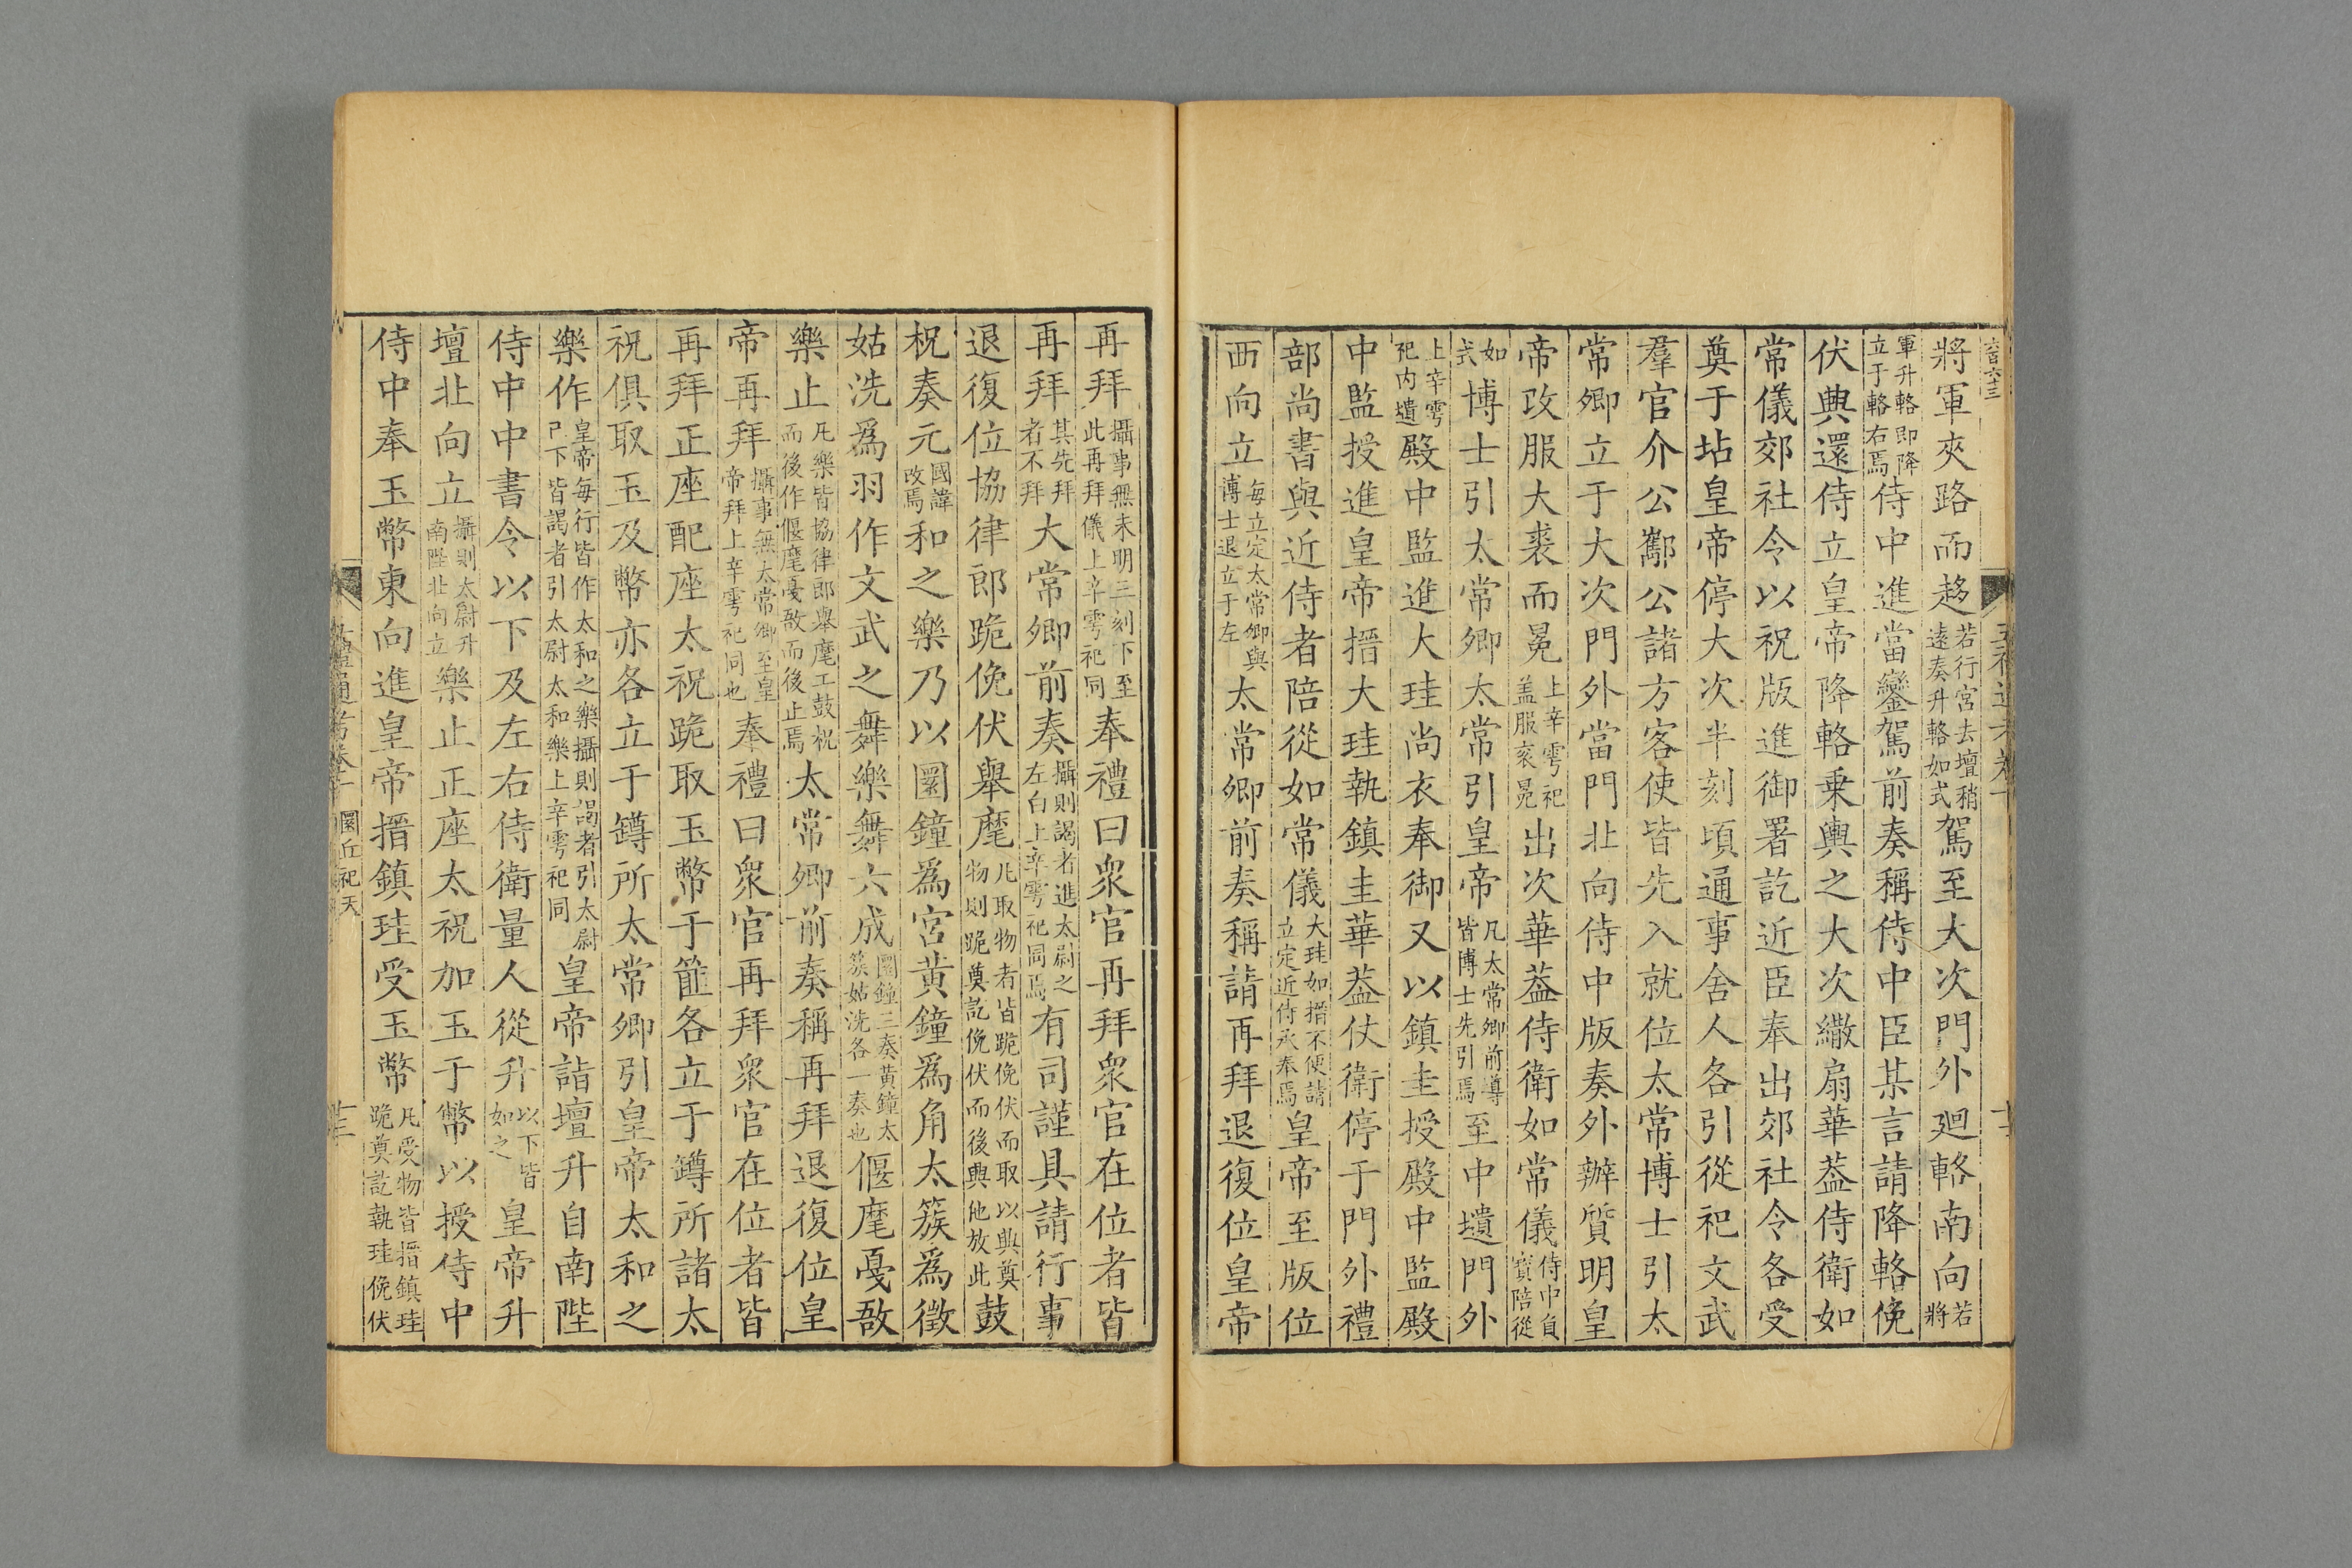 六百六十三
將軍夾路而趍若行宮去壇稍遠奏升輅如式駕至大次門外廻輅南向若將
軍升輅即降立于輅右焉侍中進當鑾駕前奏稱侍中臣某言請降輅俛
伏興還侍立皇帝降輅乗輿之大次繖扇華蓋侍衛如
常儀郊社令以祝版進御署訖近臣奉出郊社令各受
奠于坫皇帝停大次半刻頃通事舍人各引從祀文武
羣官介公酅公諸方客使皆先入就位太常博士引太
常卿立于大次門外當門北向侍中版奏外辦質明皇
帝改服大裘而冕上辛雩祀盖服衮冕出次華蓋侍衛如常儀侍中負寳陪從
如式博士引太常卿太常引皇帝凡太常卿前導皆博士先引焉至中壝門外
上辛雩祀内壝殿中監進大珪尚衣奉御又以鎮圭授殿中監殿
中監授進皇帝搢大珪執鎮圭華蓋仗衛停于門外禮
部尚書與近侍者陪從如常儀大珪如搢不便請立定近侍承奉焉皇帝至版位
西向立每立定太常卿與博士退立于左太常卿前奏稱請再拜退復位皇帝
再拜攝事無未明三刻下至此再拜儀上辛雩祀同奉禮曰衆官再拜衆官在位者皆
再拜其先拜者不拜大常卿前奏攝則謁者進太尉之左白上辛雩祀同焉有司謹具請行事
退復位協律郎跪俛伏舉麾凡取物者皆跪俛伏而取以興奠物則跪奠訖俛伏而後興他放此鼓
柷奏元國諱改焉和之樂乃以圜鐘爲宮黃鐘爲角太簇爲徵
姑洗爲羽作文武之舞樂舞六成圜鐘三奏黃鐘太簇姑洗各一奏也偃麾戞敔
樂止凡樂皆協律郎舉麾工鼓柷而後作偃麾戞敔而後止焉太常卿前奏稱再拜退復位皇
帝再拜攝事無太常卿至皇帝拜上辛雩祀同也奉禮曰衆官再拜衆官在位者皆
再拜正座配座太祝跪取玉幣于篚各立于罇所諸太
祝俱取玉及幣亦各立于罇所太常卿引皇帝太和之
樂作皇帝每行皆作太和之樂攝則謁者引太尉巳下皆謁者引太尉太和樂上辛雩祀同皇帝詣壇升自南陛
侍中中書令以下及左右侍衛量人從升以下皆如之皇帝升
壇北向立攝則太尉升南陛北向立樂止正座太祝加玉于幣以授侍中
侍中奉玉幣東向進皇帝搢鎮珪受玉幣凡受物皆搢鎮珪跪奠訖執珪俛伏
圜丘祀天